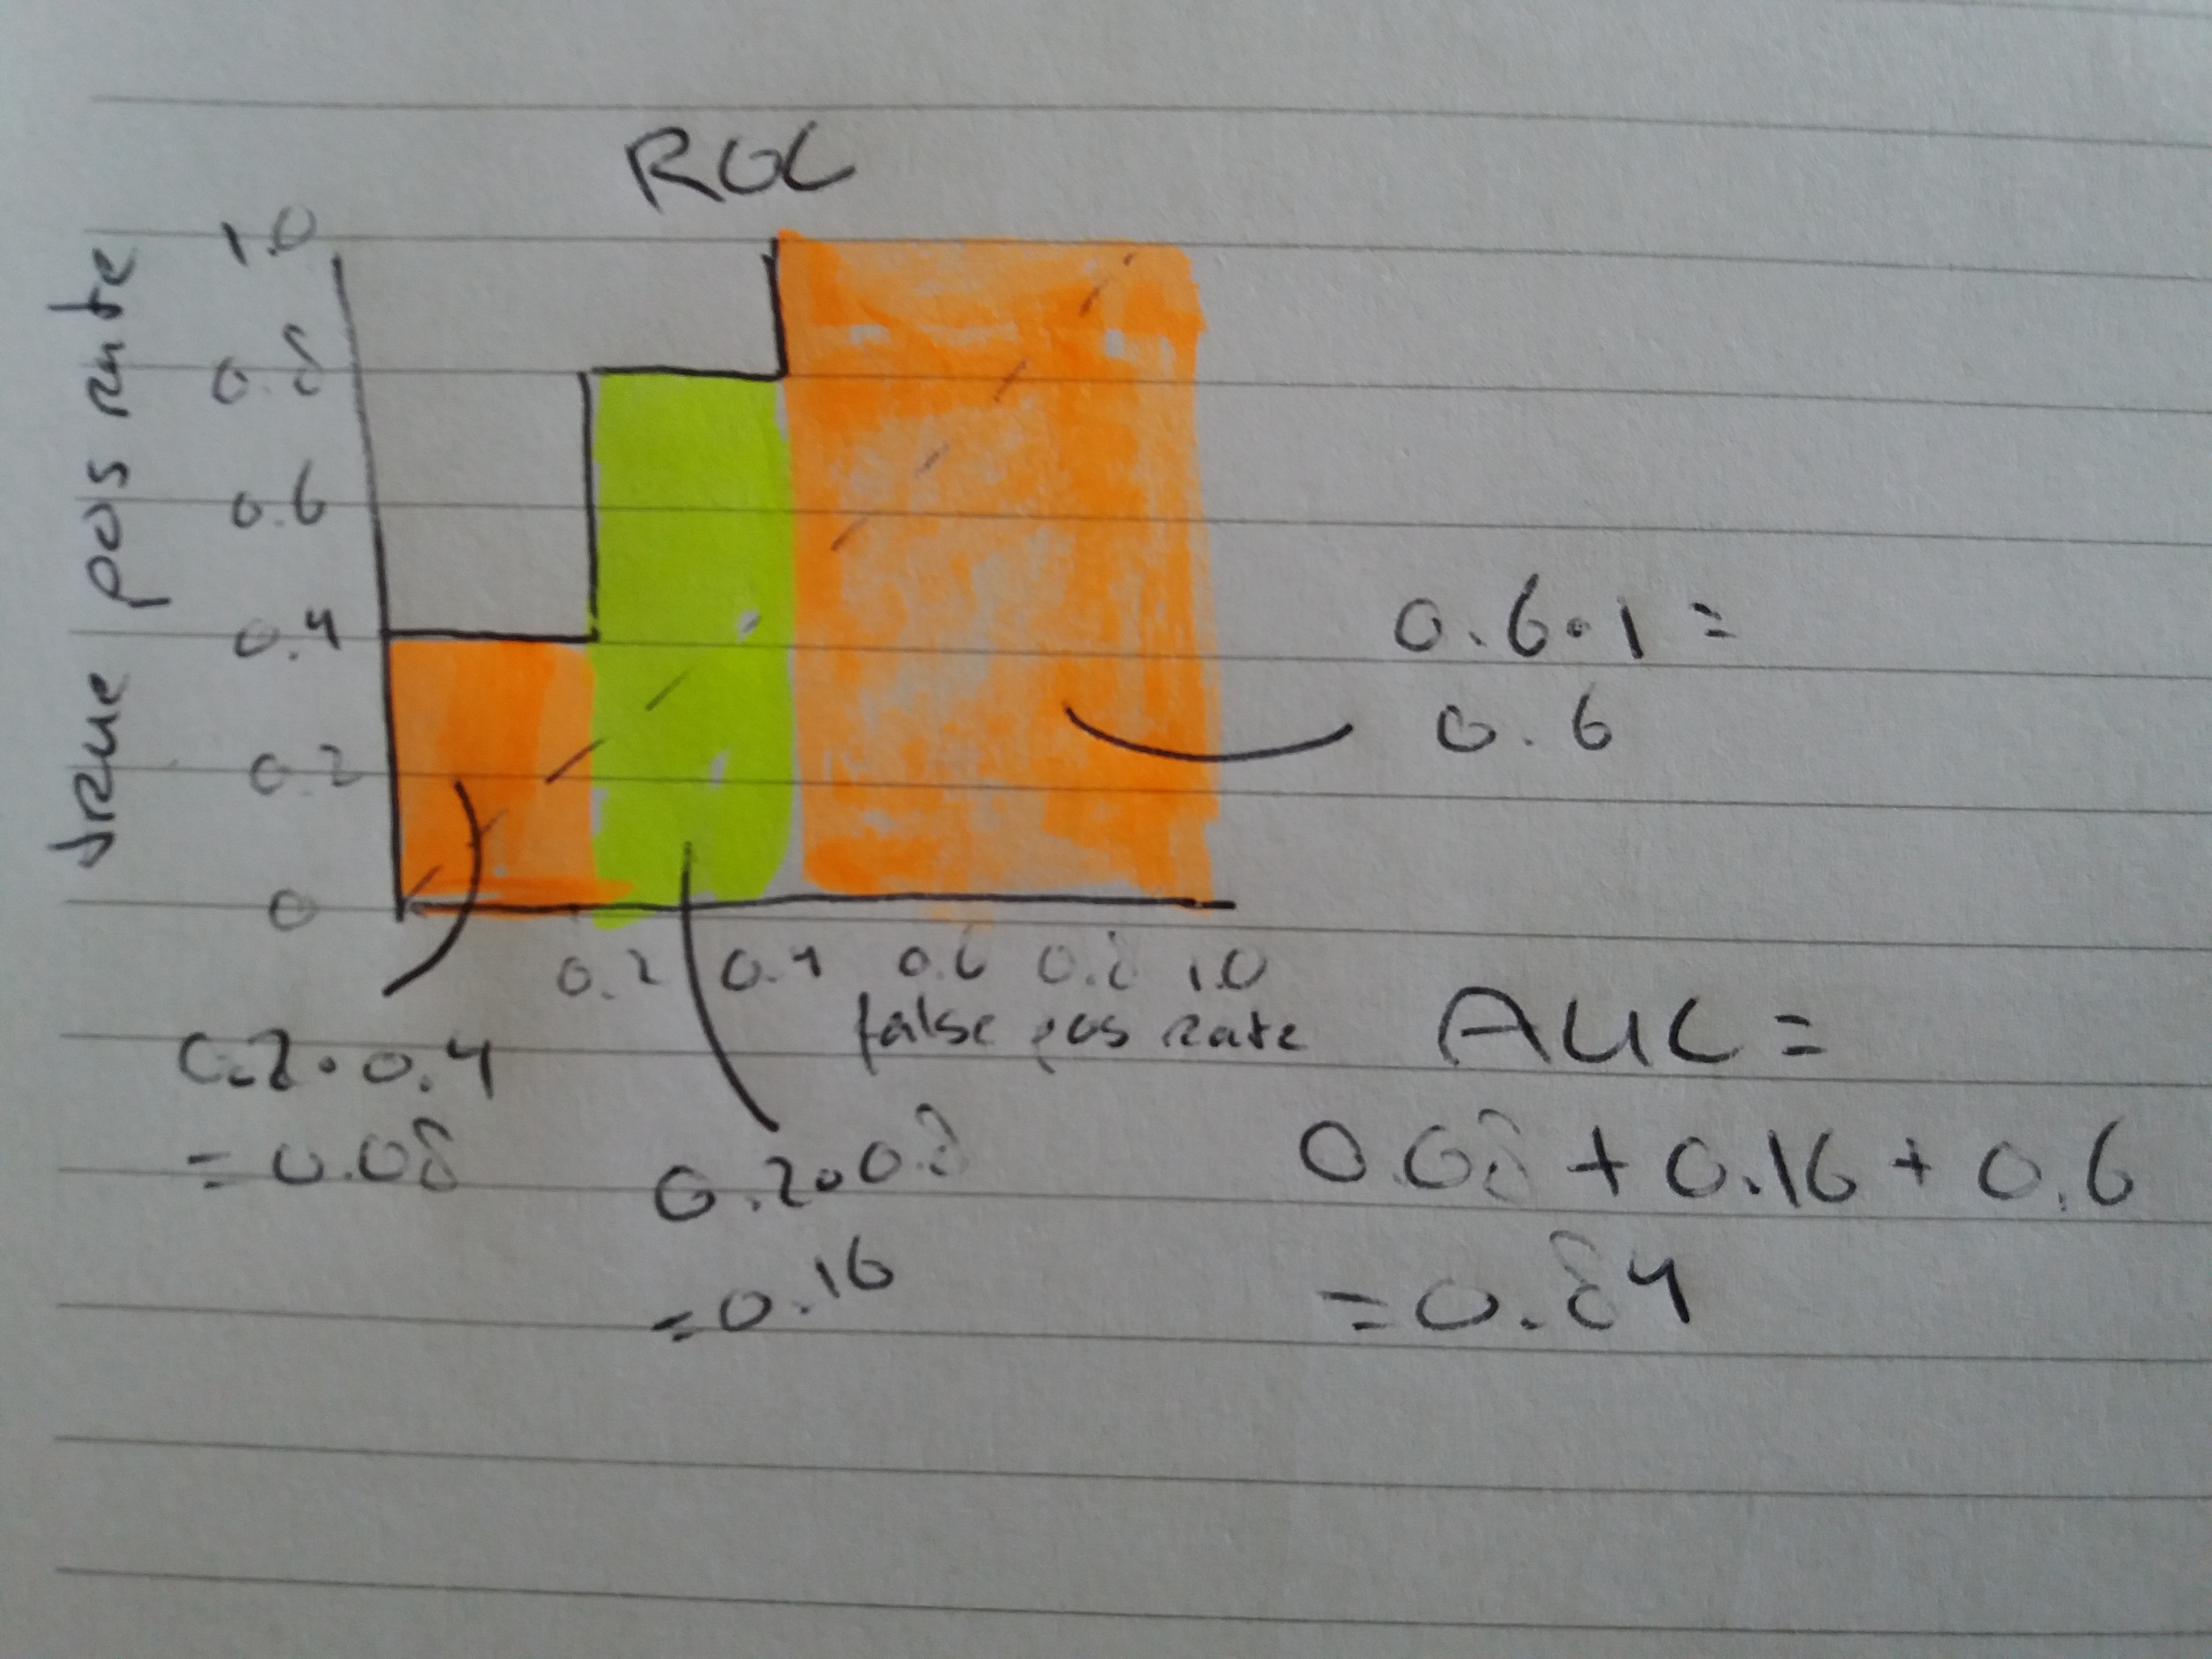 ROC
true pos rate
1.0
0.8
0.6
0.4
0.2
0
0.2 0.4 0.6 0.8 1.0
false pos rate
0.6·1 =
0.6
0.2·0.4
= 0.08
0.2·0.8
= 0.16
AUC =
0.08 + 0.16 + 0.6
= 0.84